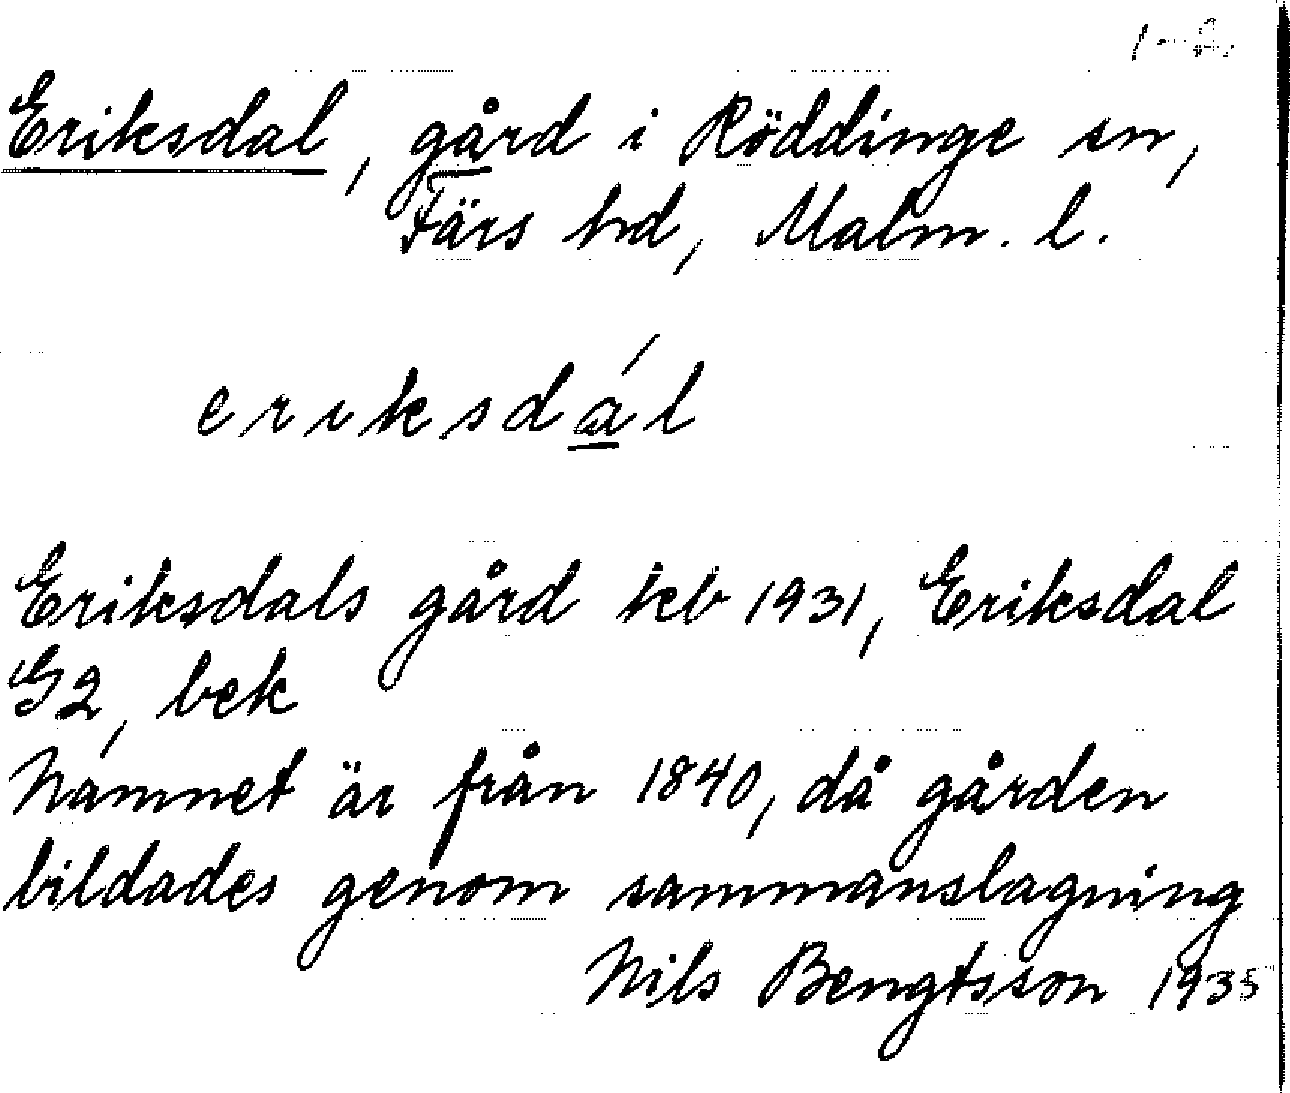 Eriksdal, gård i Röddinge sn,
Färs hd, Malm. l.
eriksdál
Eriksdals gård keb 1931, Eriksdal
G2, bek
Namnet är från 1840, då gården
bildades genom sammanslagning
Nils Bengtsson 1935